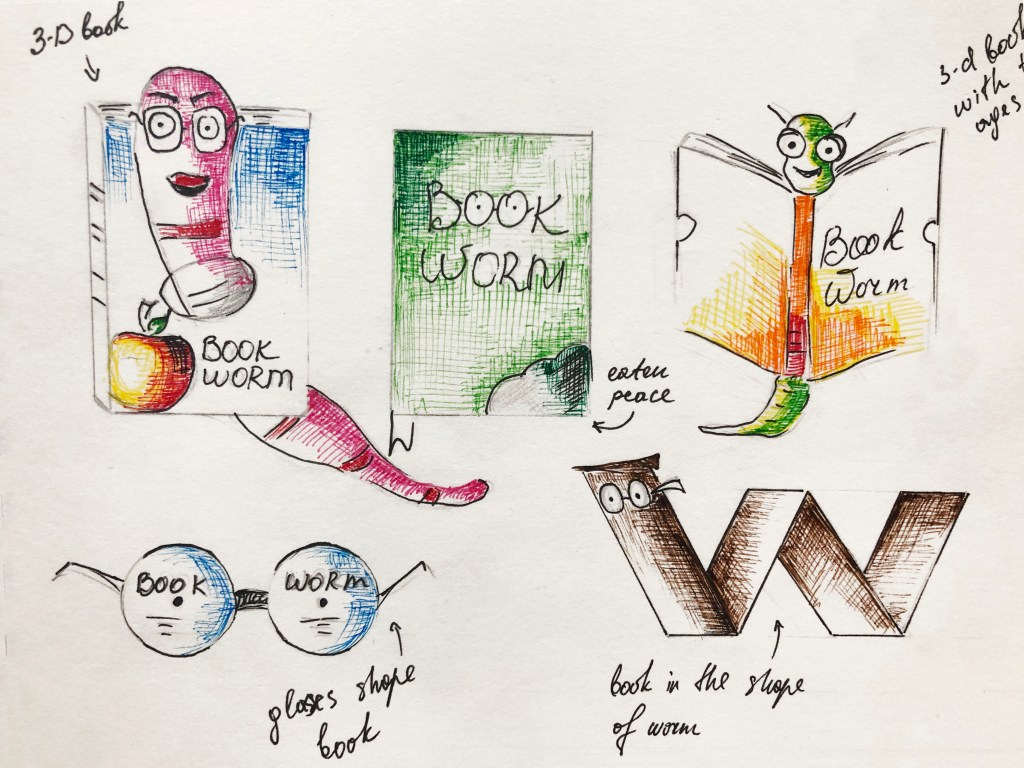 3-D book
BOOK
WORM
BOOK
WORM
eaten
peace
3-d book
with
Book
Worm
BOOK WORM
glases shape
book
book in the shape
of worm